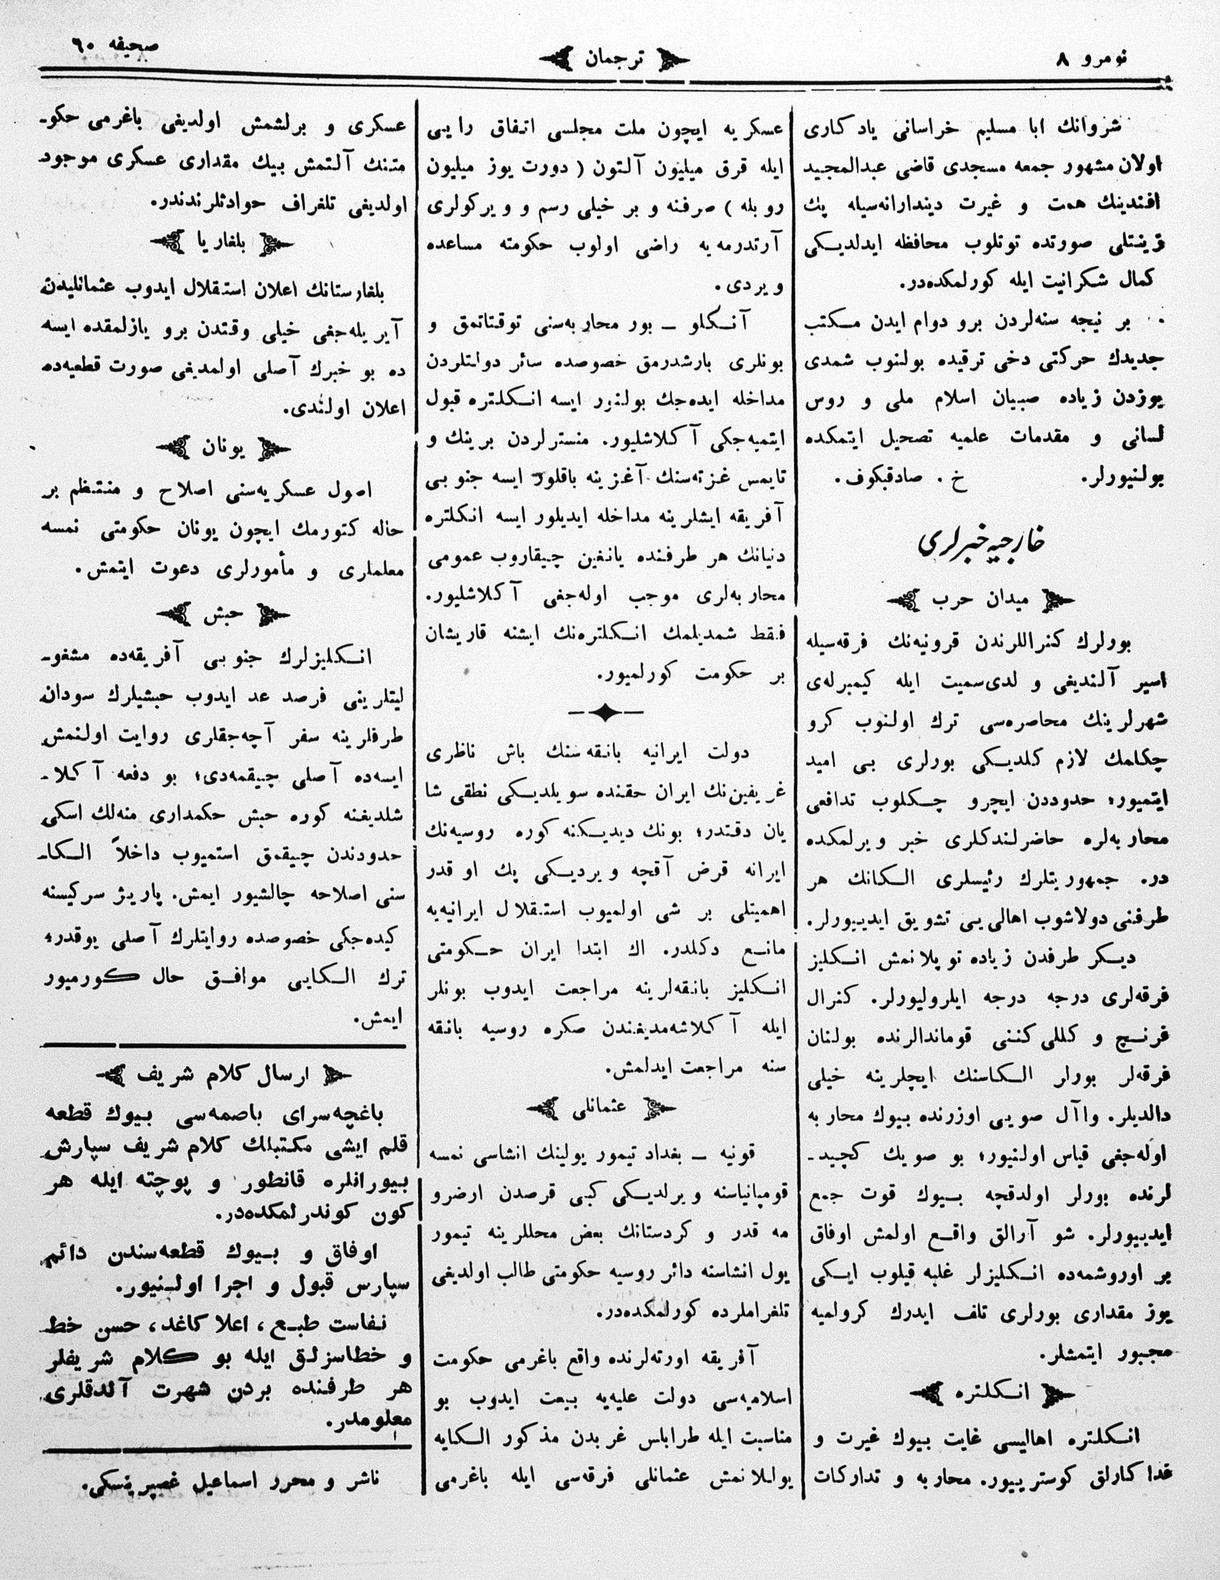 نومرو ٨
ترجمان
صحیفه ٦٠
شروانك ابا مسلیم خراسانی یادكاری
اولان مشهور جمعه مسجدی قاضی عبدالمجید
افندینك همت و غیرت دیندارانه‌سیله پك
زینتلی صورتده توتلوب محافظه ایدلدیكی
كمال شكرانیت ایله كورلمكده‌در.
بر نیجه سنه‌لردن برو دوام ایدن مكتب
جدیدك حركتی دخی ترقیده بولنوب شمدی
یوزدن زیاده صبیان اسلام ملی و روس
لسانی و مقدمات علمیه تصحیل ایتمكده
بولنیورلر. خ. صادقبكوف.
خارجیه خبرلری
میدان حرب
بورلرك كنراللرندن قرونیه‌نك فرقه‌سیله
اسیر آلندیغی و لدی‌سمیت ایله كیمبرله‌ی
شهرلرینك محاصره‌سی ترك اولنوب كرو
چكلمك لازم كلدیكی بورلری بی امید
ایتمیور؛ حدوددن ایچرو چكلوب تدافعی
محاربه‌لره حاضرلندكلری خبر ویرلمكده
در. جمهوریتلرك رئیسلری الكانك هر
طرفنی دولاشوب اهالی‌یی تشویق ایدییورلر.
دیكر طرفدن زیاده توپلانمش انكلیز
فرقه‌لری درجه درجه ایلرولیورلر. كنرال
فرنچ و كللی‌كننی قوماندالرنده بولنان
فرقه‌لر بورلر الكاسنك ایچلرینه خیلی
دالدیلر. واآل صویی اوزرنده بیوك محاربه
اوله‌جغی قیاس اولنیور؛ بو صویك كچید-
لرنده بورلر اولدقچه بیوك قوت جمع
ایدییورلر. شو آرالق واقع اولمش اوفاق
بر اوروشمه‌ده انكلیزلر غلبه قیلوب ایكی
یوز مقداری بورلری تلف ایدرك كرولمیه
مجبور ایتمشلر.
انكلتره
انكلتره اهالیسی غایت بیوك غیرت و
فداكارلق كوستریبیور. محاربه و تداركات
عسكریه ایچون ملت مجلسی اتفاق رایی
ایله قرق میلیون آلتون (دورت یوز میلیون
روبله) صرفنه و بر خیلی رسم و ویركولری
آرتدرمه‌یه راضی اولوب حكومته مساعده
ویردی.
آنكلو – بور محاربه‌سنی توقتاتمق و
بونلری بارشدرمق خصوصده سائر دولتلردن
مداخله ایده‌جك بولنور ایسه انكلتره قبول
ایتمیه‌جكی آكلاشلیور. منسترلردن برینك و
تایمس غزته‌سنك آغزینه باقلور ایسه جنوبی
آفریقه ایشلرینه مداخله ایدیلور ایسه انكلتره
دنیانك هر طرفنده یانغین چیقاروب عمومی
محاربه‌لری موجب اوله‌جغی آكلاشلیور.
فقط شمدیلمك انكلتره‌نك ایشنه قاریشان
بر حكومت كورلمیور.
دولت ایرانیه بانقه‌سنك باش ناظری
غریفین‌نك ایران حقنده سویلدیكی نطقی شا
یان دقتدر؛ بونك دیدیكنه كوره روسیه‌نك
ایرانه قرض آقچه ویردیكی پك اوقدر
اهمیتلی بر شی اولمیوب استقلال ایرانیه‌یه
مانع دكلدر. اك ابتدا ایران حكومتی
انكلیز بانقه‌لرینه مراجعت ایدوب بونلر
ایله آكلاشه‌مدیغندن صكره روسیه بانقه
سنه مراجعت ایدلمش.
عثمانلی
قونیه – بغداد تیمور یولینك انشاسی نمسه
قومپانیاسنه ویرلدیكی كبی قرصدن ارضرو
مه قدر و كردستانك بعض محللرینه تیمور
یول انشاسنه دائر روسیه حكومتی طالب اولدیغی
تلغراملرده كورلمكده‌در.
آفریقه اورته‌لرنده واقع باغرمی حكومت
اسلامیه‌سی دولت علیه‌یه بیعت ایدوب بو
مناسبت ایله طرابلس غربدن مذكور الكایه
یوللانمش عثمانلی فرقه‌سی ایله باغرمی
عسكری و برلشمش اولدیغی باغرمی حكو-
متنك آلتمش بیك مقداری عسكری موجود
اولدیغی تلغراف حوادثلرندندر.
بلغاریا
بلغارستانك اعلان استقلال ایدوب عثمانلیدن
آیریله‌جغی خیلی وقتدن برو یازلمقده ایسه
ده بو خبرك آصلی اولمدیغی صورت قطعیه‌ده
اعلان اولندی.
یونان
اصول عسكریه‌سنی اصلاح و منتظم بر
حاله كتورمك ایچون یونان حكومتی نمسه
معلماری و مأمورلری دعوت ایتمش.
حبش
انكلیزلرك جنوبی آفریقه‌ده مشغو-
لیتلرینی فرصد عد ایدوب حبشیلرك سودان
طرفلرینه سفر آچه‌جقلری روایت اولنمش
ایسه‌ده آصلی چیقمه‌دی؛ بو دفعه آكلا-
شلدیغنه كوره حبش حكمداری منه‌لك اسكی
حدودندن چیقمق استمیوب داخلاً الكا-
سنی اصلاحه چالشیور ایمش. پاریژ سركیسنه
كیده‌جكی خصوصده روایتلرك آصلی یوقدر؛
ترك الكایی موافق حال كورمیور
ایمش.
ارسال كلام شریف
باغچه‌سرای باصمه‌سی بیوك قطعه
قلم ایشی مكتبلك كلام شریف سپارش
بیورانلره قانطور و پوچته ایله هر
كون كوندرلمكده‌در.
اوفاق و بیوك قطعه‌سندن دائم
سپارس قبول و اجرا اولنیور.
نفاست طبع، اعلا كاغد، حسن خط
و خطاسزلق ایله بو كلام شریفلر
هر طرفنده بردن شهرت آلدقلری
معلومدر.
ناشر و محرر اسماعیل غصپرینسكی.